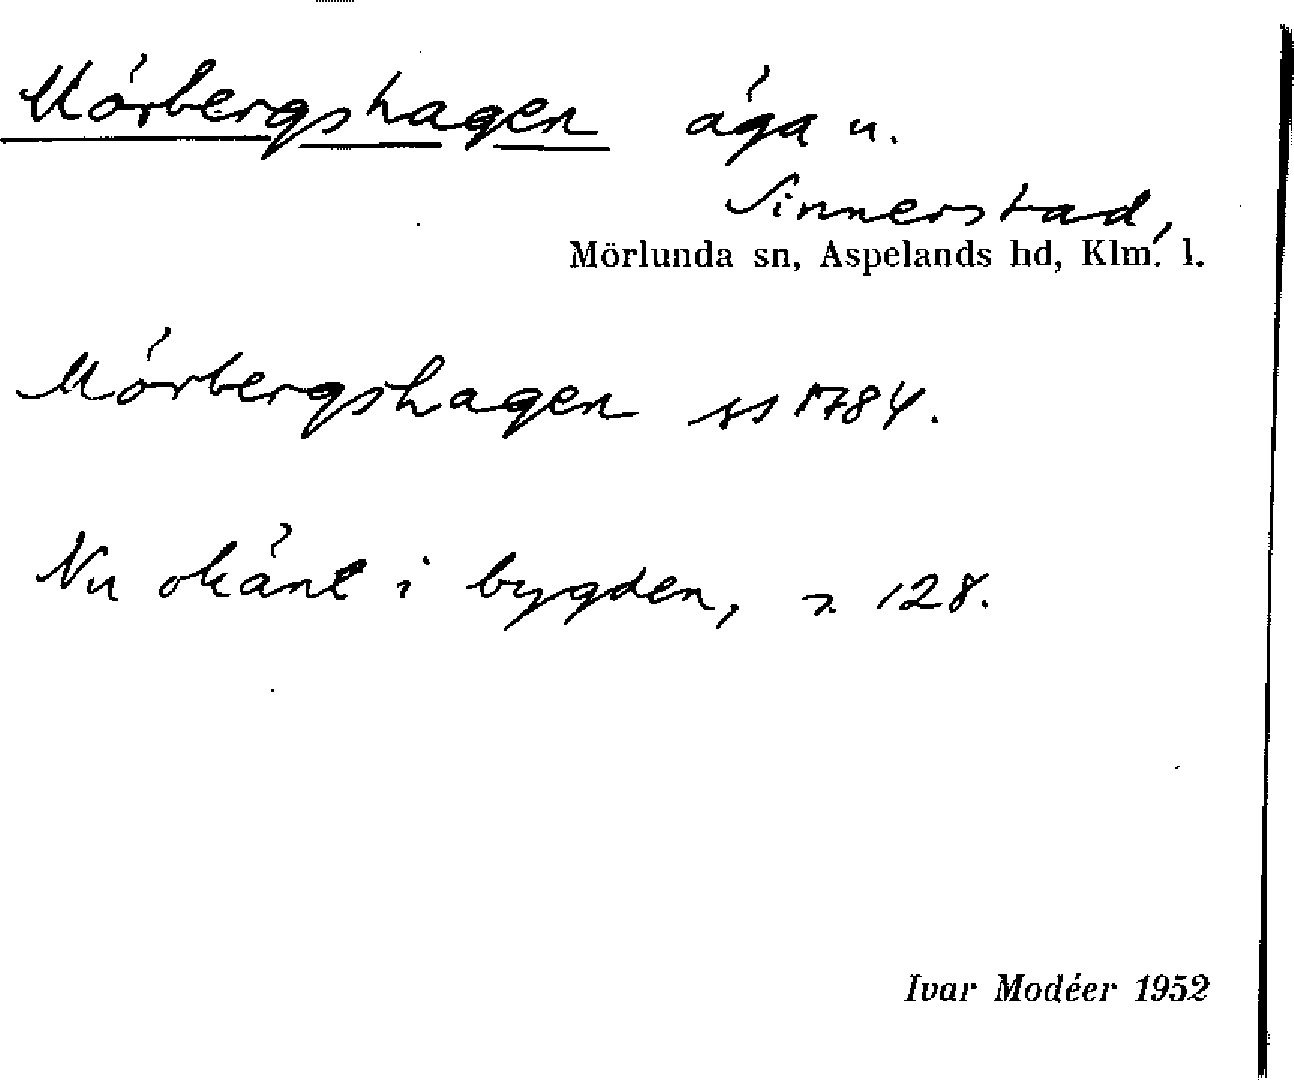 Mörbergshagen äga u.
Sinnerstad,
Mörlunda sn, Aspelands hd, Klm. l.
Mörbergshagen ss 1784.
Nu okänt i bygden, 128.
Ivar Modéer 1952